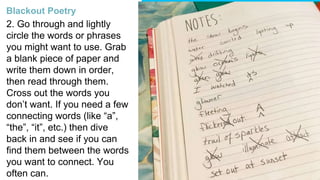 Blackout Poetry
2. Go through and lightly
circle the words or phrases
you might want to use. Grab
a blank piece of paper and
write them down in order,
then read through them.
Cross out the words you
don’t want. If you need a few
connecting words (like “a”,
“the”, “it”, etc.) then dive
back in and see if you can
find them between the words
you want to connect. You
often can.
NOTES:
the show begins
water cooled lighting
drifting
glow
glow as
I watched
glimmer
fleeting
flickers out A
trail of sparkles
glow illuminate about
set out at sunset